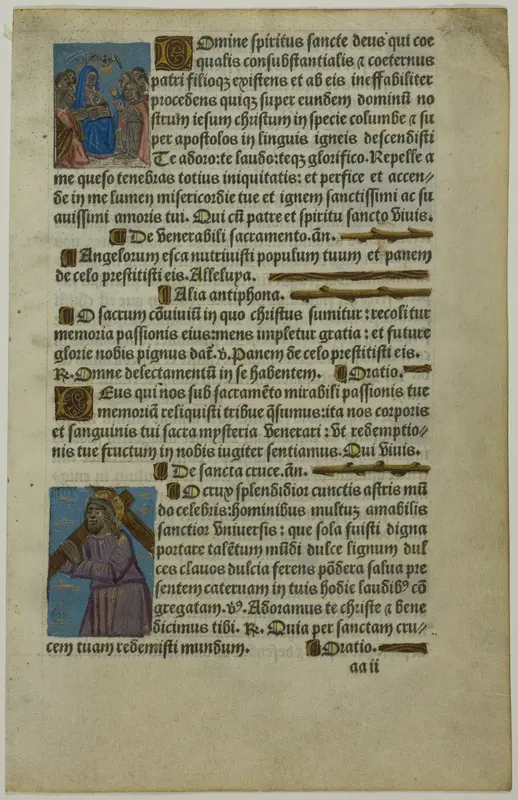 Domine spiritus sancte deus qui coe
qualis consubstantialis ⁊ coeternus
patri filioqꝫ existens et ab eis ineffabiliter
procedens quiqꝫ super eundem dominū no
strum iesum christum in specie columbe ⁊ su
per apostolos in linguis igneis descendisti
Te adoro:te laudo:teqꝫ glorifico.Repelle a
me queso tenebras totius iniquitatis: et perfice et accen⸗
de in me lumen misericordie tue et ignem sanctissimi ac su
auissimi amoris tui. Qui cū patre et spiritu sancto viuis.
De venerabili sacramento.añ.
Angelorum esca nutriuisti populum tuum et panem
de celo prestitisti eis.Alleluya.
Alia antiphona.
O sacrum cōuiuiū in quo christus sumitur:recolitur
memoria passionis eius:mens impletur gratia: et future
glorie nobis pignus daƭ.v̄.Panem de celo prestitisti eis.
℞.Omne delectamentū in se habentem. Oratio.
DEus qui nos sub sacramēto mirabili passionis tue
memoriā reliquisti tribue q̄sumus:ita nos corporis
et sanguinis tui sacra mysteria venerari: vt redemptio⸗
nis tue fructum in nobis iugiter sentiamus.Qui viuis.
De sancta cruce.añ.
O crux splendidior cunctis astris mū
do celebris:hominibus multuꝫ amabilis
sanctior vniuersis: que sola fuisti digna
portare talētum mūdi dulce lignum dul
ces clauos dulcia ferens pōdera salua pre
sentem cateruam in tuis hodie laudibꝰ cō
gregatam.v̄.Adoramus te christe ⁊ bene
dicimus tibi. ℞. Quia per sanctam cru⸗
cem tuam redemisti mundum. Oratio.
aa ii